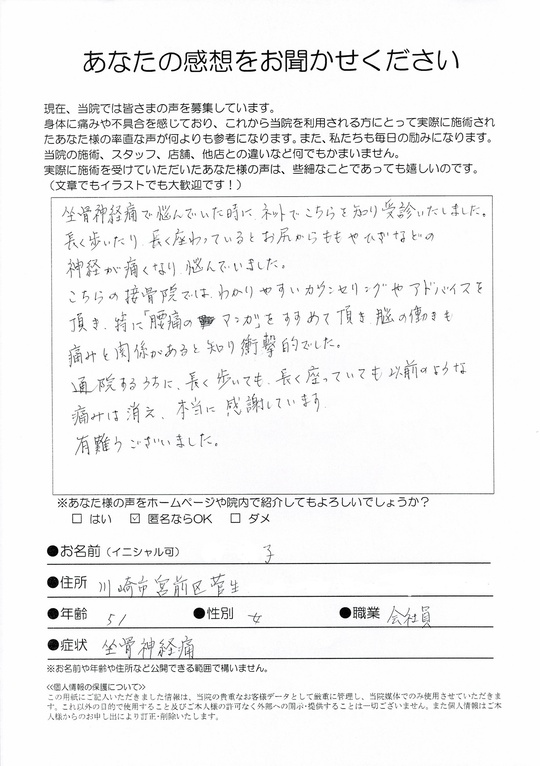 あなたの感想をお聞かせください
現在、当院では皆さまの声を募集しています。
身体に痛みや不具合を感じており、これから当院を利用される方にとって実際に施術され
たあなた様の率直な声が何よりも参考になります。また、私たちも毎日の励みになります。
当院の施術、スタッフ、店舗、他店との違いなど何でもかまいません。
実際に施術を受けていただいたあなた様の声は、些細なことであっても嬉しいのです。
(文章でもイラストでも大歓迎です!)
坐骨神経痛で悩んでいた時に、ネットでこちらを知り受診いたしました。
長く歩いたり、長く座わっているとお尻からももやひざなどの
神経が痛くなり、悩んでいました。
こちらの接骨院では、わかりやすいカウンセリングやアドバイスを
頂き、特に「腰痛の マンガ」をすすめて頂き、脳の働きも
痛みと関係があると知り衝撃的でした。
通院するうちに、長く歩いても、長く座っていても以前のような
痛みは消え、本当に感謝しています。
有難うございました。
※あなた様の声をホームページや院内で紹介してもよろしいでしょうか?
□ はい ☑ 匿名ならOK □ ダメ
●お名前(イニシャル可) 子
●住所 川崎市宮前区菅生
●年齢 51 ●性別 女 ●職業 会社員
●症状 坐骨神経痛
※お名前や年齢や住所など公開できる範囲で構いません。
<<個人情報の保護について>>
この用紙にご記入いただきました情報は、当院の貴重なお客様データとして厳重に管理し、当院媒体でのみ使用させていただきま
す。これ以外の目的で使用すること及びご本人様の許可なく外部への開示・提供することは一切ございません。また個人情報はご本
人様からのお申し出により訂正・削除いたします。